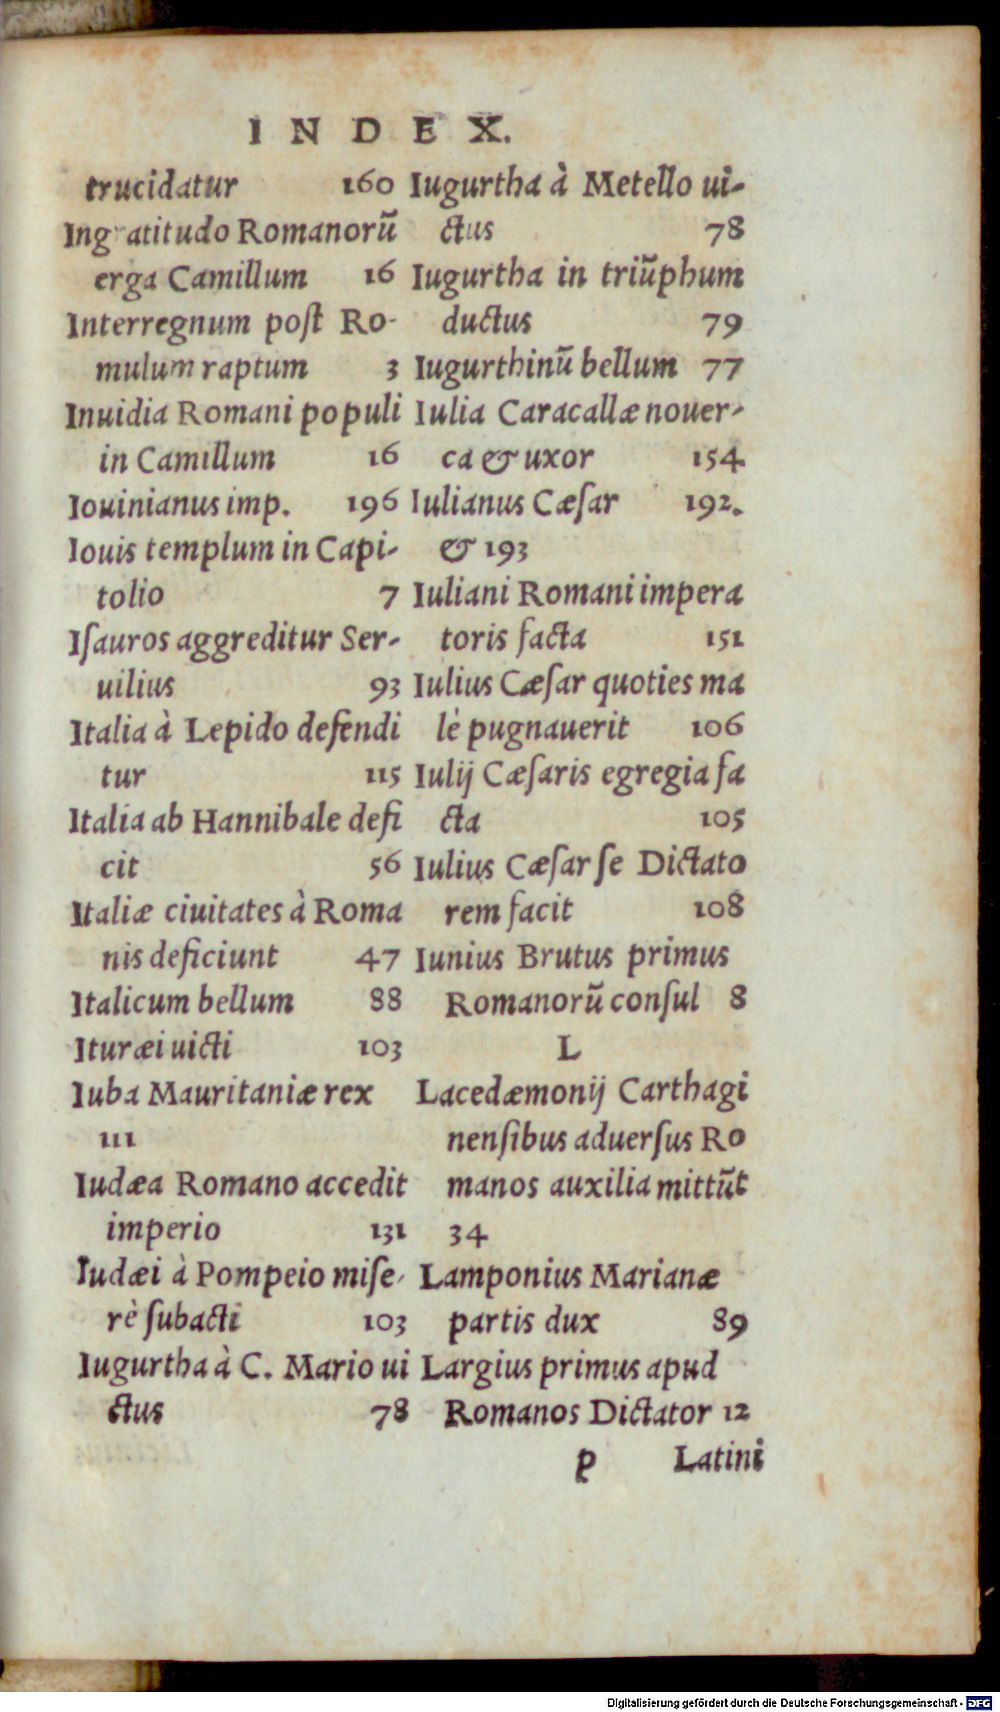 INDEX.
trucidatur 160
Ingratitudo Romanorū
erga Camillum 16
Interregnum poſt Ro-
mulum raptum 3
Inuidia Romani populi
in Camillum 16
Iouinianus imp. 196
Iouis templum in Capi-
tolio 7
Iſauros aggreditur Ser-
uilius 93
Italia à Lepido defendi
tur 115
Italia ab Hannibale defi
cit 56
Italiæ ciuitates à Roma
nis deficiunt 47
Italicum bellum 88
Ituræi uicti 103
Iuba Mauritaniæ rex
111
Iudæa Romano accedit
imperio 131
Iudæi à Pompeio miſe-
rè ſubacti 103
Iugurtha à C. Mario ui
ctus 78
Iugurtha à Metello ui-
ctus 78
Iugurtha in triūphum
ductus 79
Iugurthinū bellum 77
Iulia Caracallæ nouer-
ca & uxor 154
Iulianus Cæſar 192.
& 193
Iuliani Romani impera
toris facta 151
Iulius Cæſar quoties ma
lè pugnauerit 106
Iulij Cæſaris egregia fa
cta 105
Iulius Cæſar ſe Dictato
rem facit 108
Iunius Brutus primus
Romanorū conſul 8
L
Lacedæmonij Carthagi
nenſibus aduerſus Ro
manos auxilia mittūt
34
Lamponius Marianæ
partis dux 89
Largius primus apud
Romanos Dictator 12
p Latini
Digitalisierung gefördert durch die Deutsche Forschungsgemeinschaft - DFG